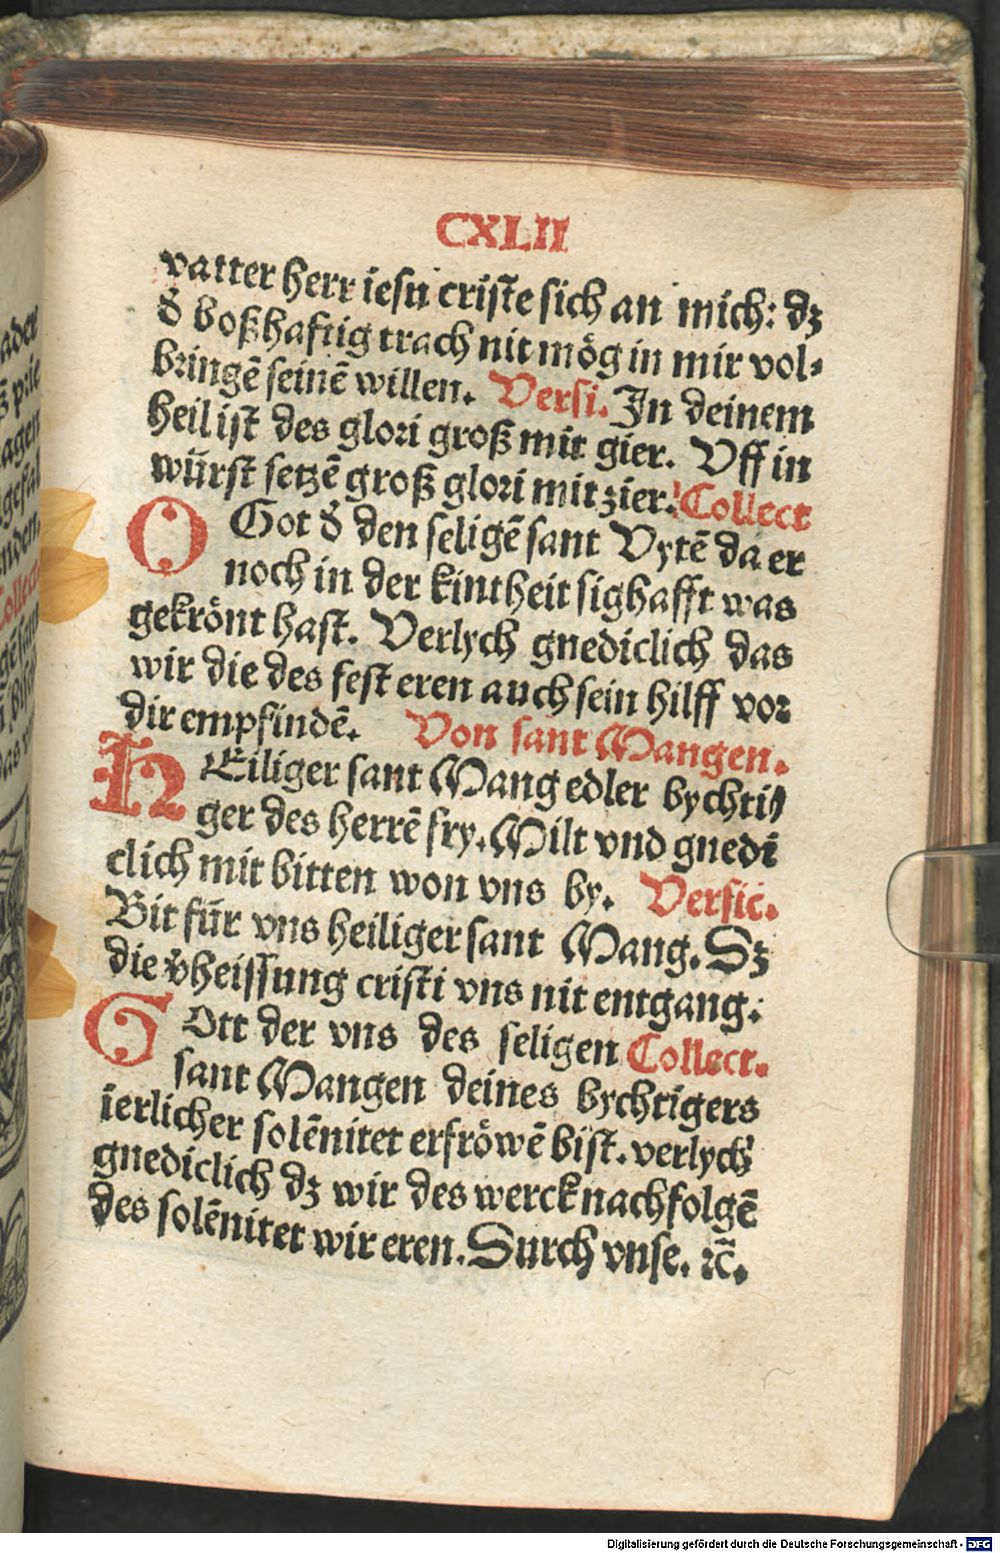 CXLII
vatter herr iesu criste sich an mich: dz
d̕ boßhafftig trach nit mög in mir vol⸗
bringē seinē willen. Versi. In deinem
heil ist des glori groß mit gier. Vff in
würst setzē groß glori mit zier. Collect
O Got d̕ den seligē sant Vytē da er
noch in der kintheit sighafft was
gekrönt hast. Verlych gnediclich das
wir die des fest eren auch sein hilff vor
dir empfindē. Von sant Mangen.
HEiliger sant Mang edler bychti⸗
ger des herrē fry. Milt vnd gnedi
clich mit bitten won vns by. Versic̄.
Bit für vns heiliger sant Mang. Dz
die v̕heissung cristi vns nit entgang:
GOtt der vns des seligen Collect.
sant Mangen deines bychtigers
ierlicher solēnitet erfröwē bist. verlych
gnediclich dz wir des werck nachfolgē
des solēnitet wir eren. Durch vnse. ⁊c̄.
ader
ß prie
agen
gefal
enden.
Collect
Digitalisierung gefördert durch die Deutsche Forschungsgemeinschaft - DFG